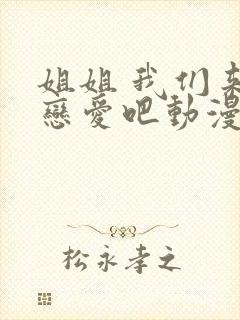 姐姐我们来
戀愛吧動漫
松永孝之